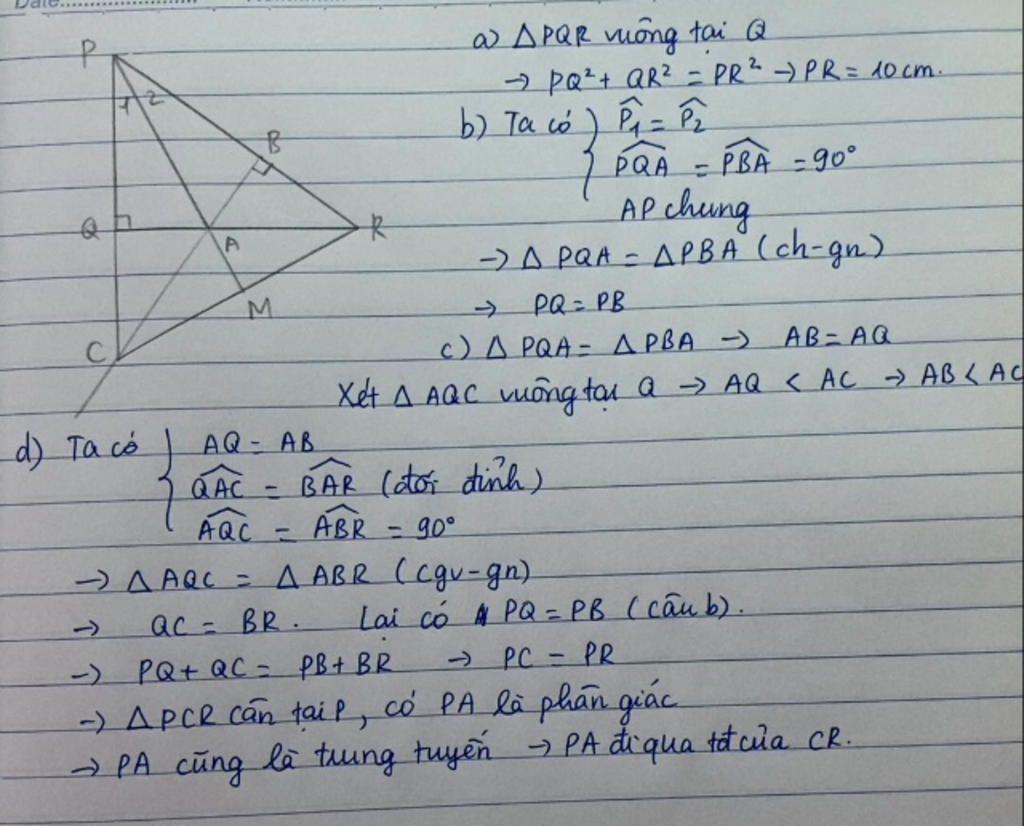 Date
P
1 2
B
Q
A
R
M
C
a) ΔPQR vuông tại Q
→ PQ² + QR² = PR² → PR = 10cm.
b) Ta có { P̂₁ = P̂₂
PQA = PBA = 90°
AP chung
→ Δ PQA = ΔPBA (ch-gn)
→ PQ = PB
c) Δ PQA = Δ PBA → AB = AQ
Xét Δ AQC vuông tại Q → AQ < AC → AB < AC
d) Ta có { AQ = AB
QAC = BAR (đối đỉnh)
AQC = ABR = 90°
→ Δ AQC = Δ ABR (cgv-gn)
→ QC = BR. Lại có PQ = PB (câu b).
→ PQ + QC = PB + BR → PC = PR
→ ΔPCR cân tại P, có PA là phân giác
→ PA cũng là trung tuyến → PA đi qua tđ của CR.